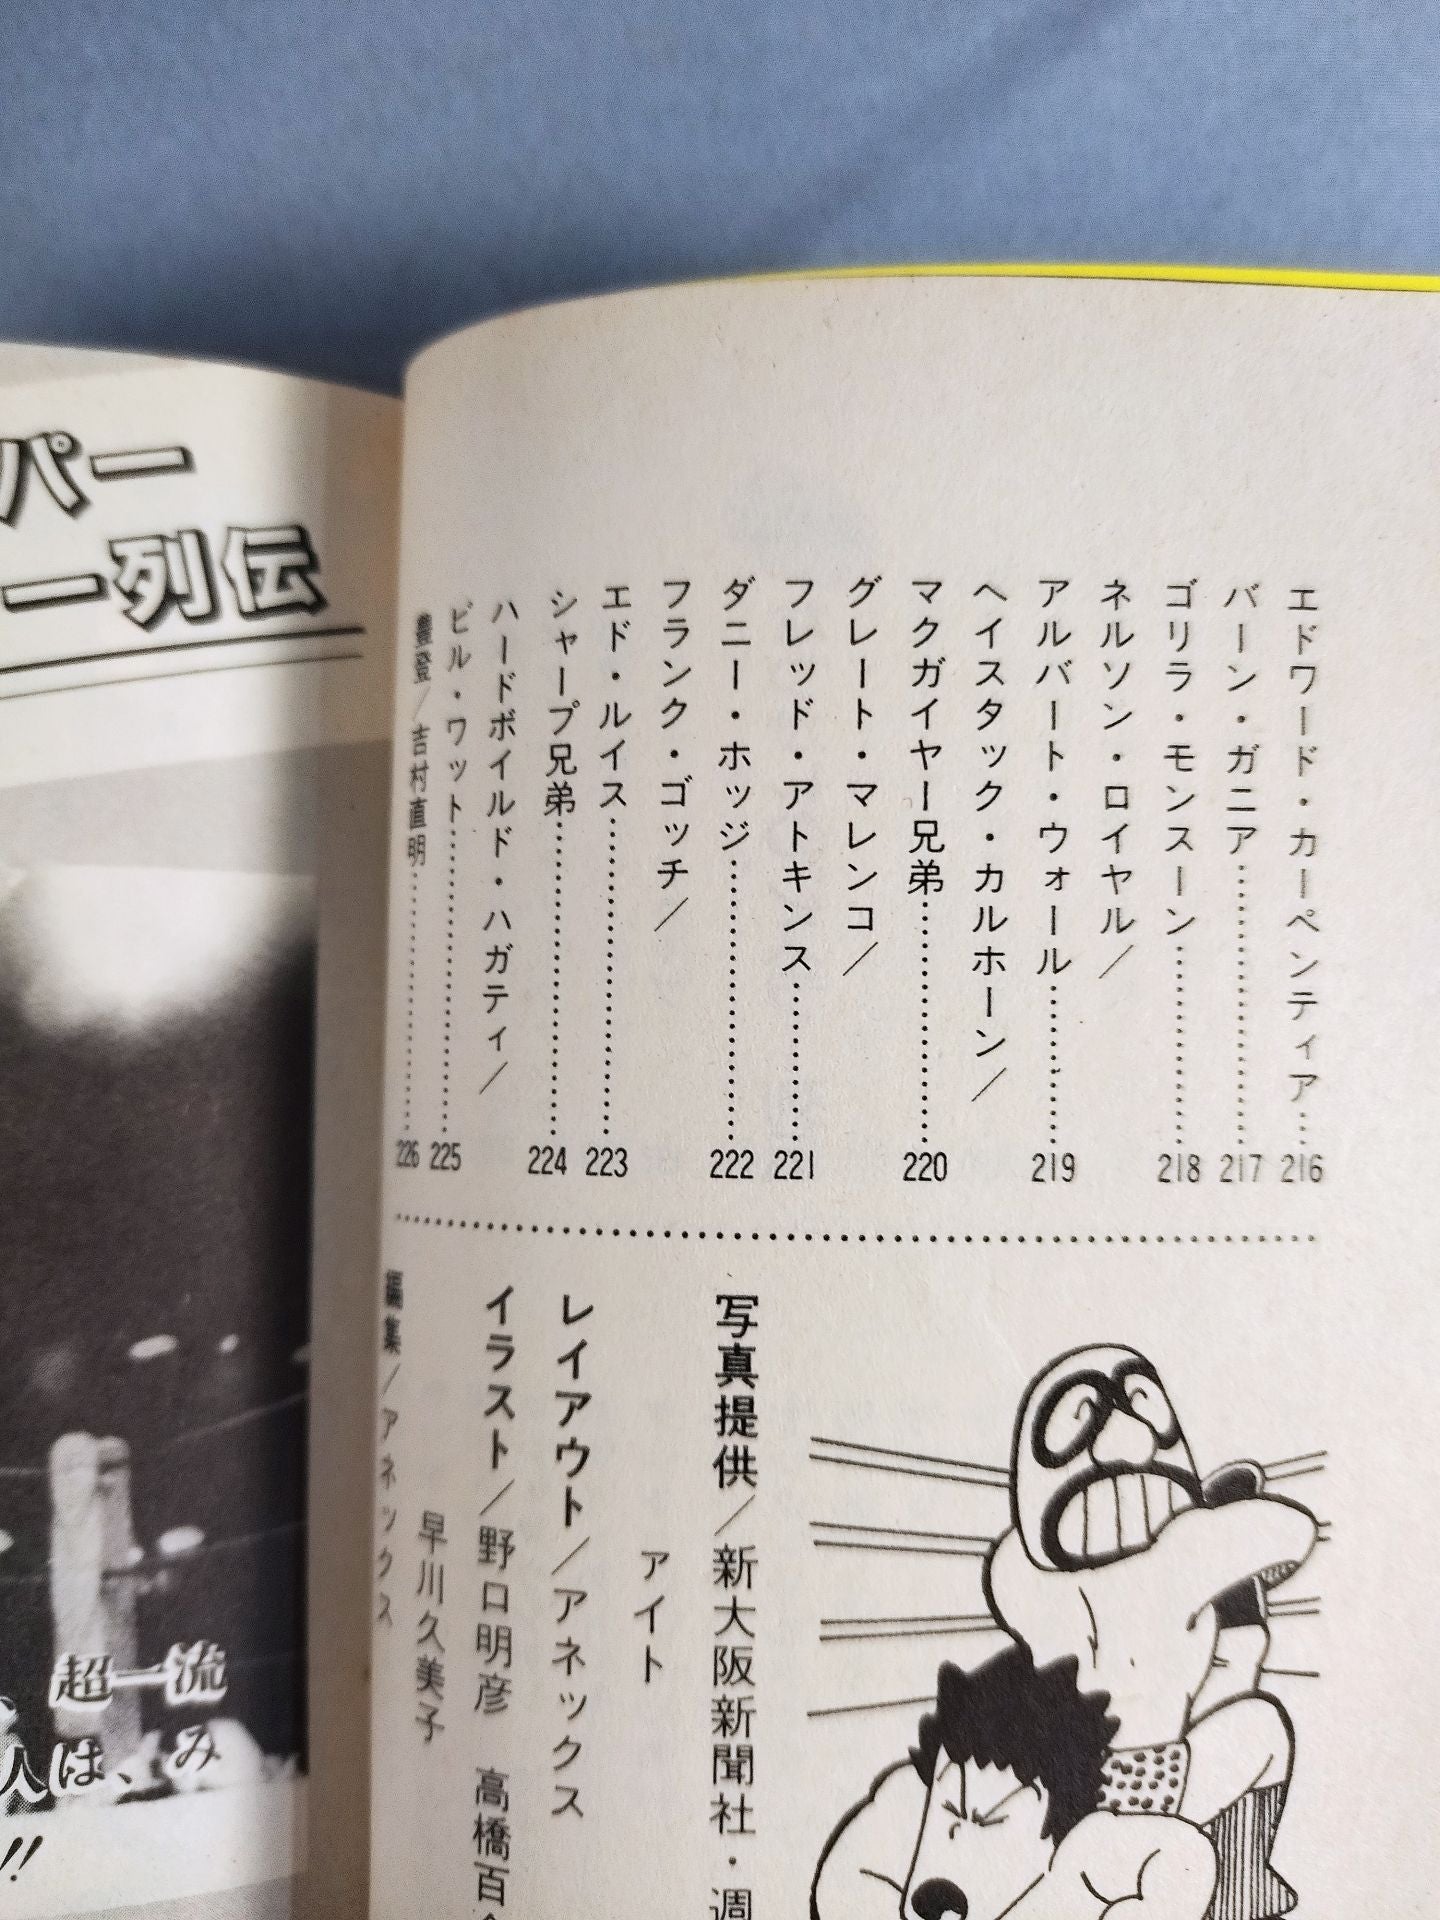 エドワード・カーペンティア……216
バーン・ガニア……217
ゴリラ・モンスーン……218
ネルソン・ロイヤル／
アルバート・ウォール……219
ヘイスタック・カルホーン／
マクガイヤー兄弟……220
グレート・マレンコ／
フレッド・アトキンス……221
ダニー・ホッジ……222
フランク・ゴッチ／
エド・ルイス……223
シャープ兄弟……224
ハードボイルド・ハガティ／
ビル・ワット……225
／吉村直明……226
写真提供／新大阪新聞社・週
アイト
レイアウト／アネックス
イラスト／野口明彦 高橋百合
早川久美子
編集／アネックス
パー
ー列伝
超一流
人は、み
!!